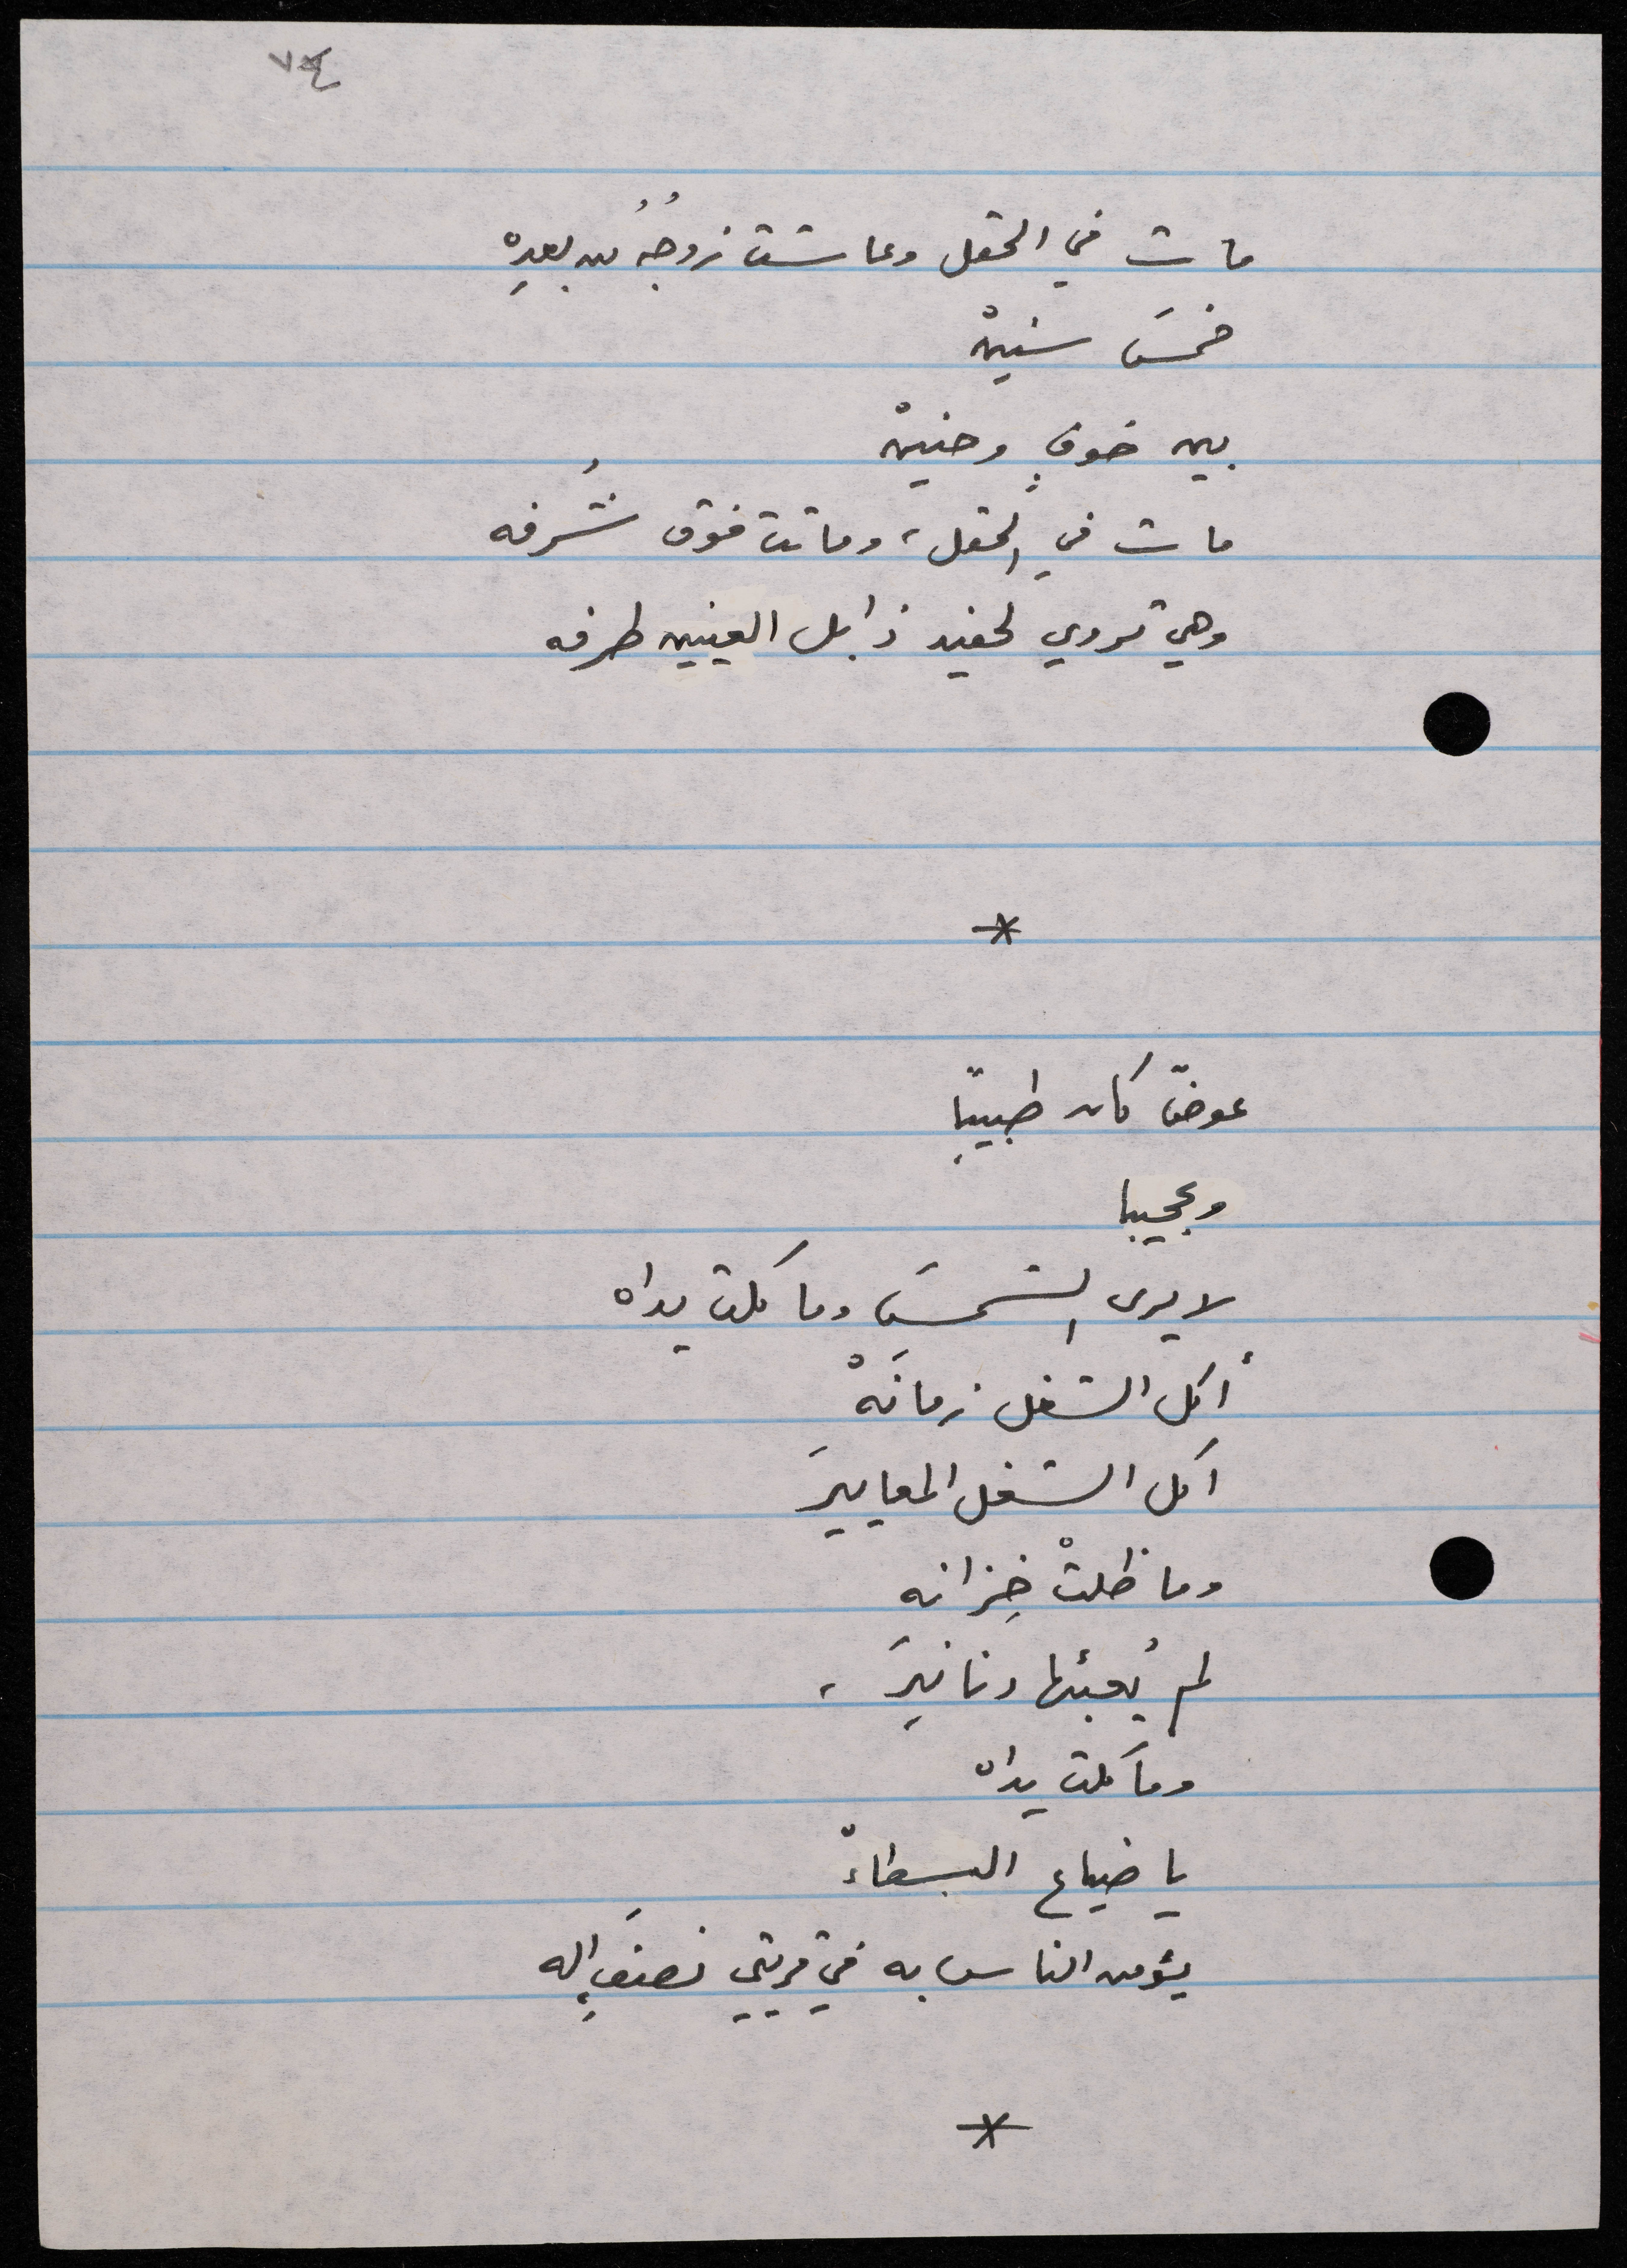 ٧٤
مات في الحقل وعاشت زوجُهُ من بعدِهِ
خمسَ سنينْ
بين خوفٍ وحنينْ
مات في الحقل، وماتت فوق شُرفه
وهي تروي لحفيد ذابل العينين طرفه
*
عوضٌ كان طبيبًا
وعجيبا
لا يرى الشمسَ وما كلت يداه
أكل الشغل زمانَهْ
اكل الشغل المعاييرَ
وما ظلتْ خِزانه
لم يُعبئها دنانيرَ ،
وما كلت يداه
يا ضياع البسطاءْ
يؤمن الناس به في قريتي نصفَ إله
*